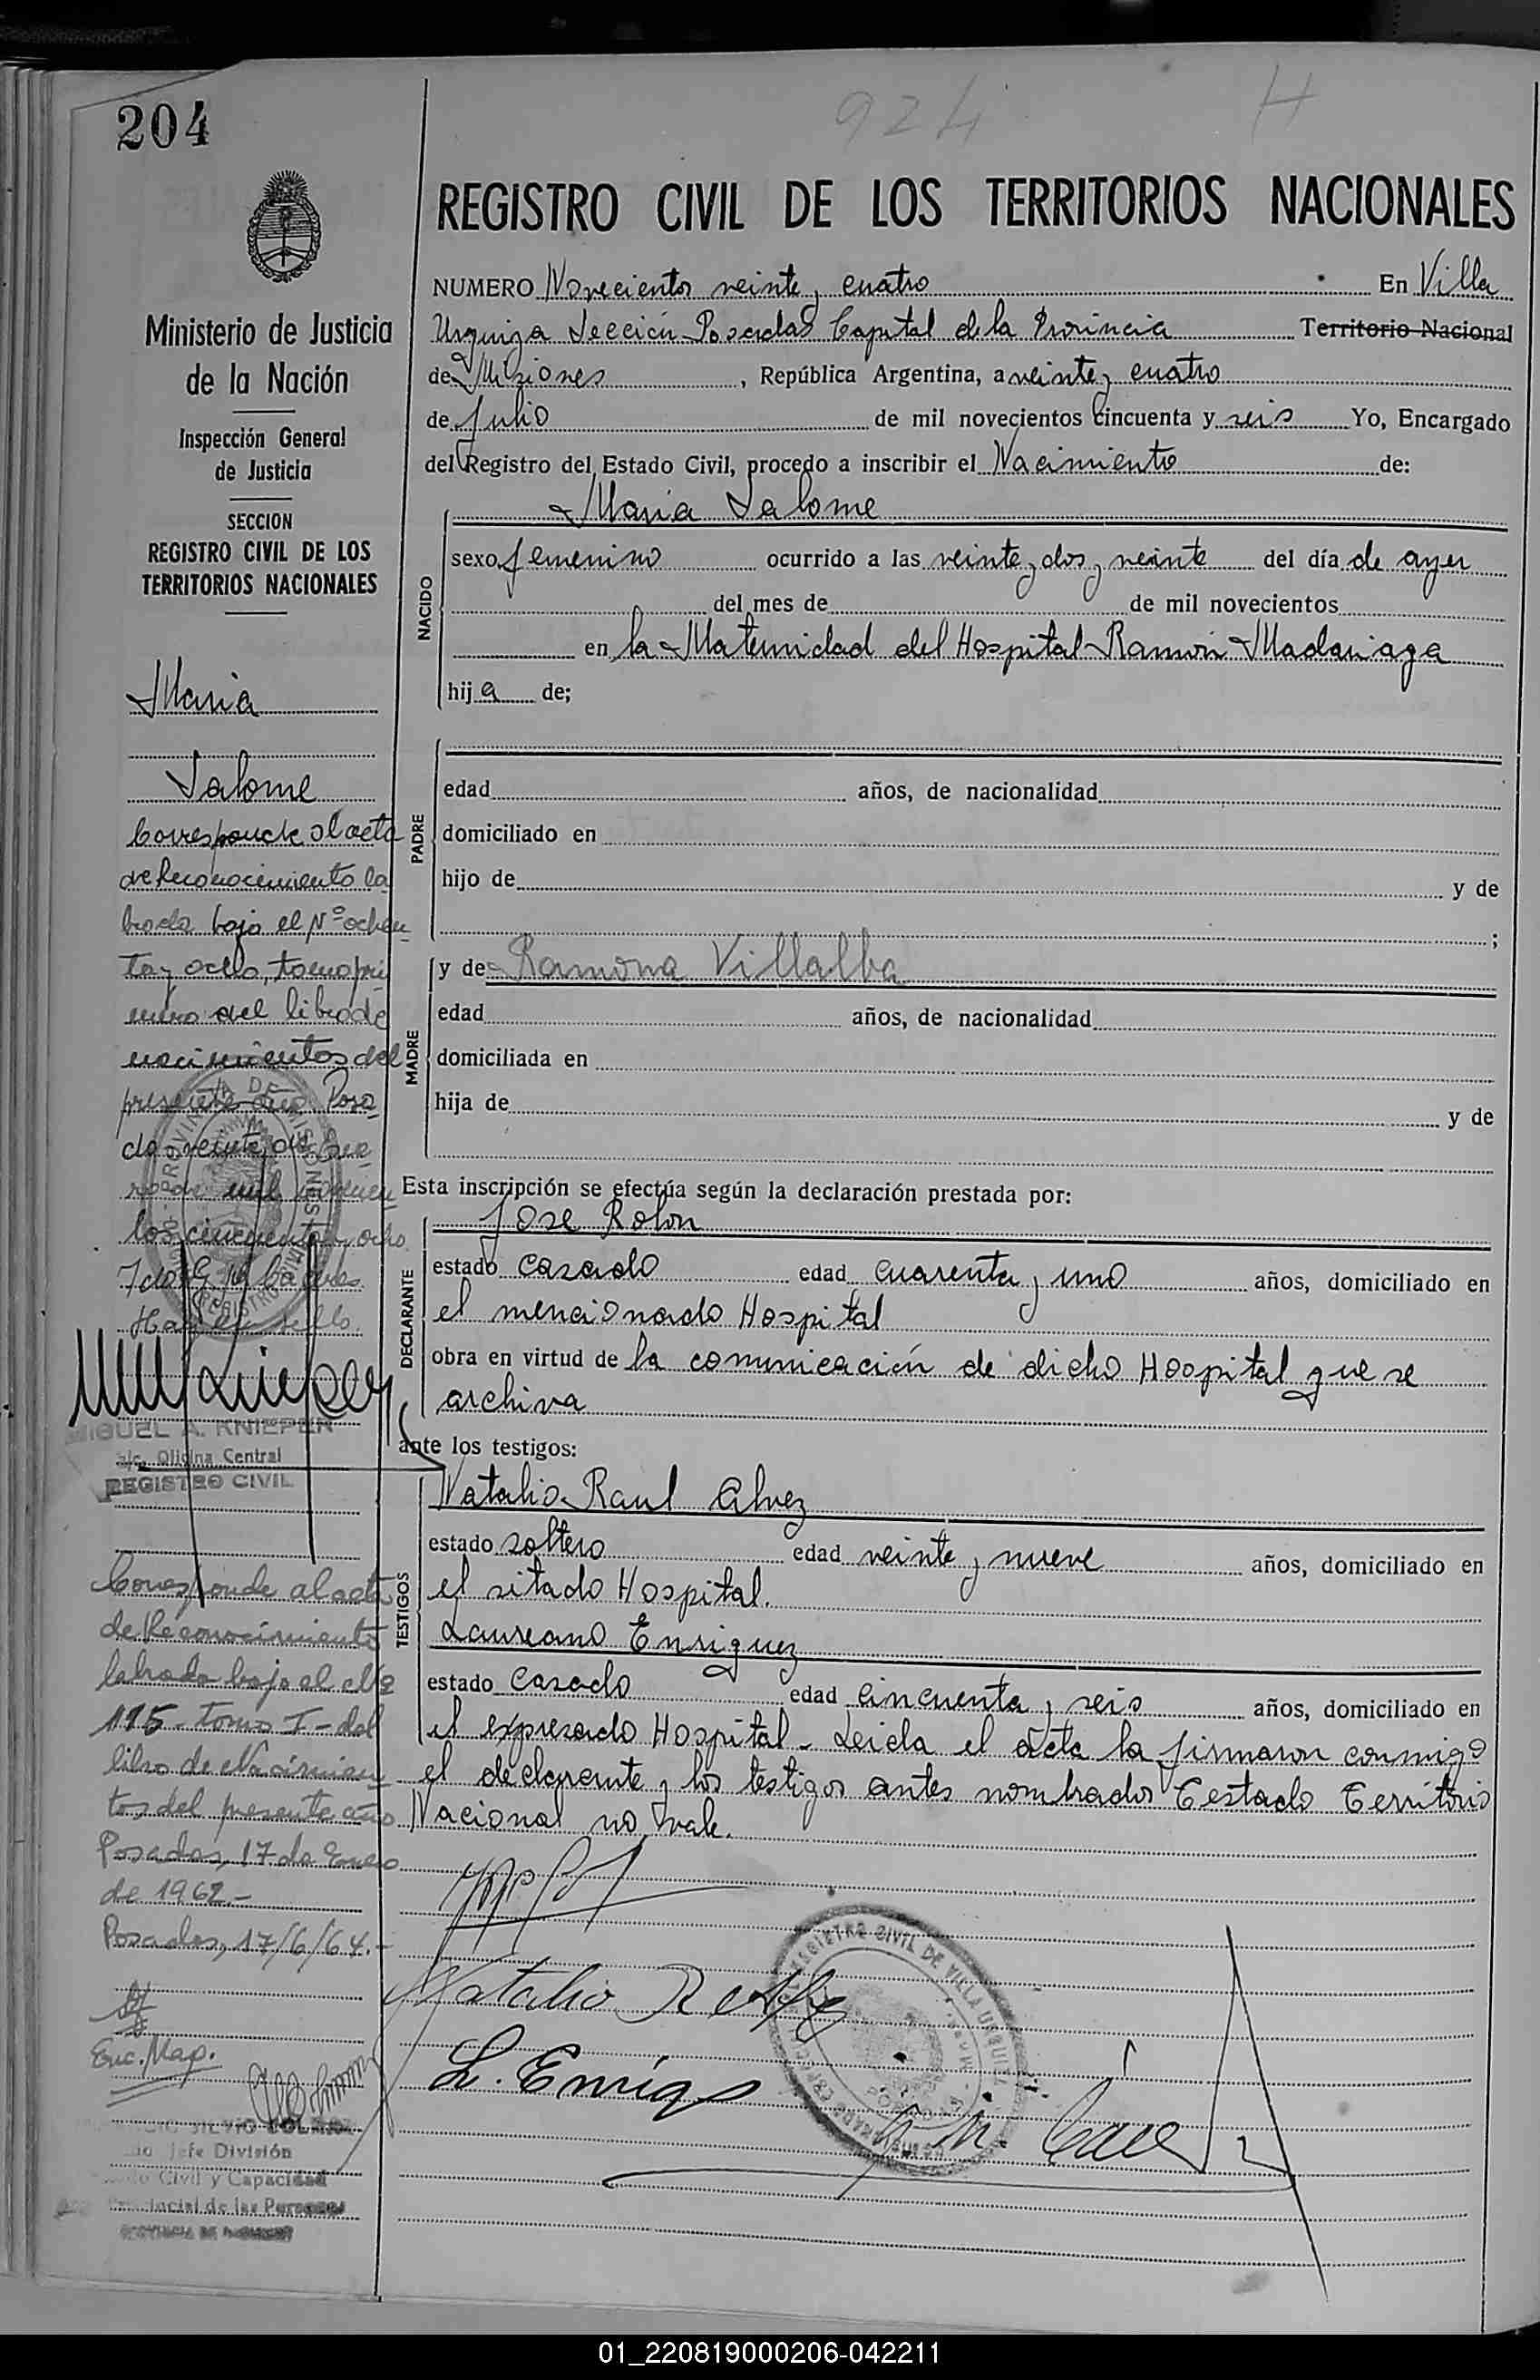 204
924
H
Ministerio de Justicia
de la Nación
Inspección General
de Justicia
SECCION
REGISTRO CIVIL DE LOS
TERRITORIOS NACIONALES
Maria
Salome
Corresponde al acta
de Reconocimiento la
brada bajo el Nº ochen
ta y ocho, tomo pri
mero del libro de
nacimientos del
presente año Posa
das veinte de Ene
ro de mil novecien
tos cincuenta y ocho
Hay un sello.
MIGUEL A. KNIEPER
Oficina Central
REGISTRO CIVIL
Corresponde al acta
de Reconocimiento
labrada bajo el Nº
115 - tomo I - del
libro de Nacimien
tos del presente año
Posadas, 17 de Enero
de 1962.-
Posadas, 17/6/64.-
Enc. Map.
Jefe División
Civil y Capacidad
Provincial de las Personas
REGISTRO CIVIL DE LOS TERRITORIOS NACIONALES
NUMERO Novecientos veinte y cuatro En Villa
Urquiza Sección Posadas Capital de la Provincia Territorio Nacional
de Misiones, República Argentina, a veinte y cuatro
de Julio de mil novecientos cincuenta y seis Yo, Encargado
del Registro del Estado Civil, procedo a inscribir el Nacimiento de:
Maria Salome
NACIDO
sexo femenino ocurrido a las veinte y dos y veinte del día de ayer
del mes de de mil novecientos
en la Maternidad del Hospital Ramón Madariaga
hija de;
PADRE
edad años, de nacionalidad
domiciliado en
hijo de y de
;
MADRE
y de Ramona Villalba
edad años, de nacionalidad
domiciliada en
hija de y de
Esta inscripción se efectúa según la declaración prestada por:
DECLARANTE
Jose Rolon
estado casado edad cuarenta y uno años, domiciliado en
el mencionado Hospital
obra en virtud de la comunicación de dicho Hospital que se
archiva
ante los testigos:
TESTIGOS
Natalio Raul Alvez
estado soltero edad veinte y nueve años, domiciliado en
el sitado Hospital.
Laureano Enriquez
estado casado edad cincuenta y seis años, domiciliado en
el expresado Hospital - Leida el acta la firmaron conmigo
el declarante y los testigos antes nombrados Testado Territorio
Nacional no vale.
Natalio R Alvez
L. Enriqz
REGISTRO CIVIL DE VILLA URQUIZA
01_220819000206-042211